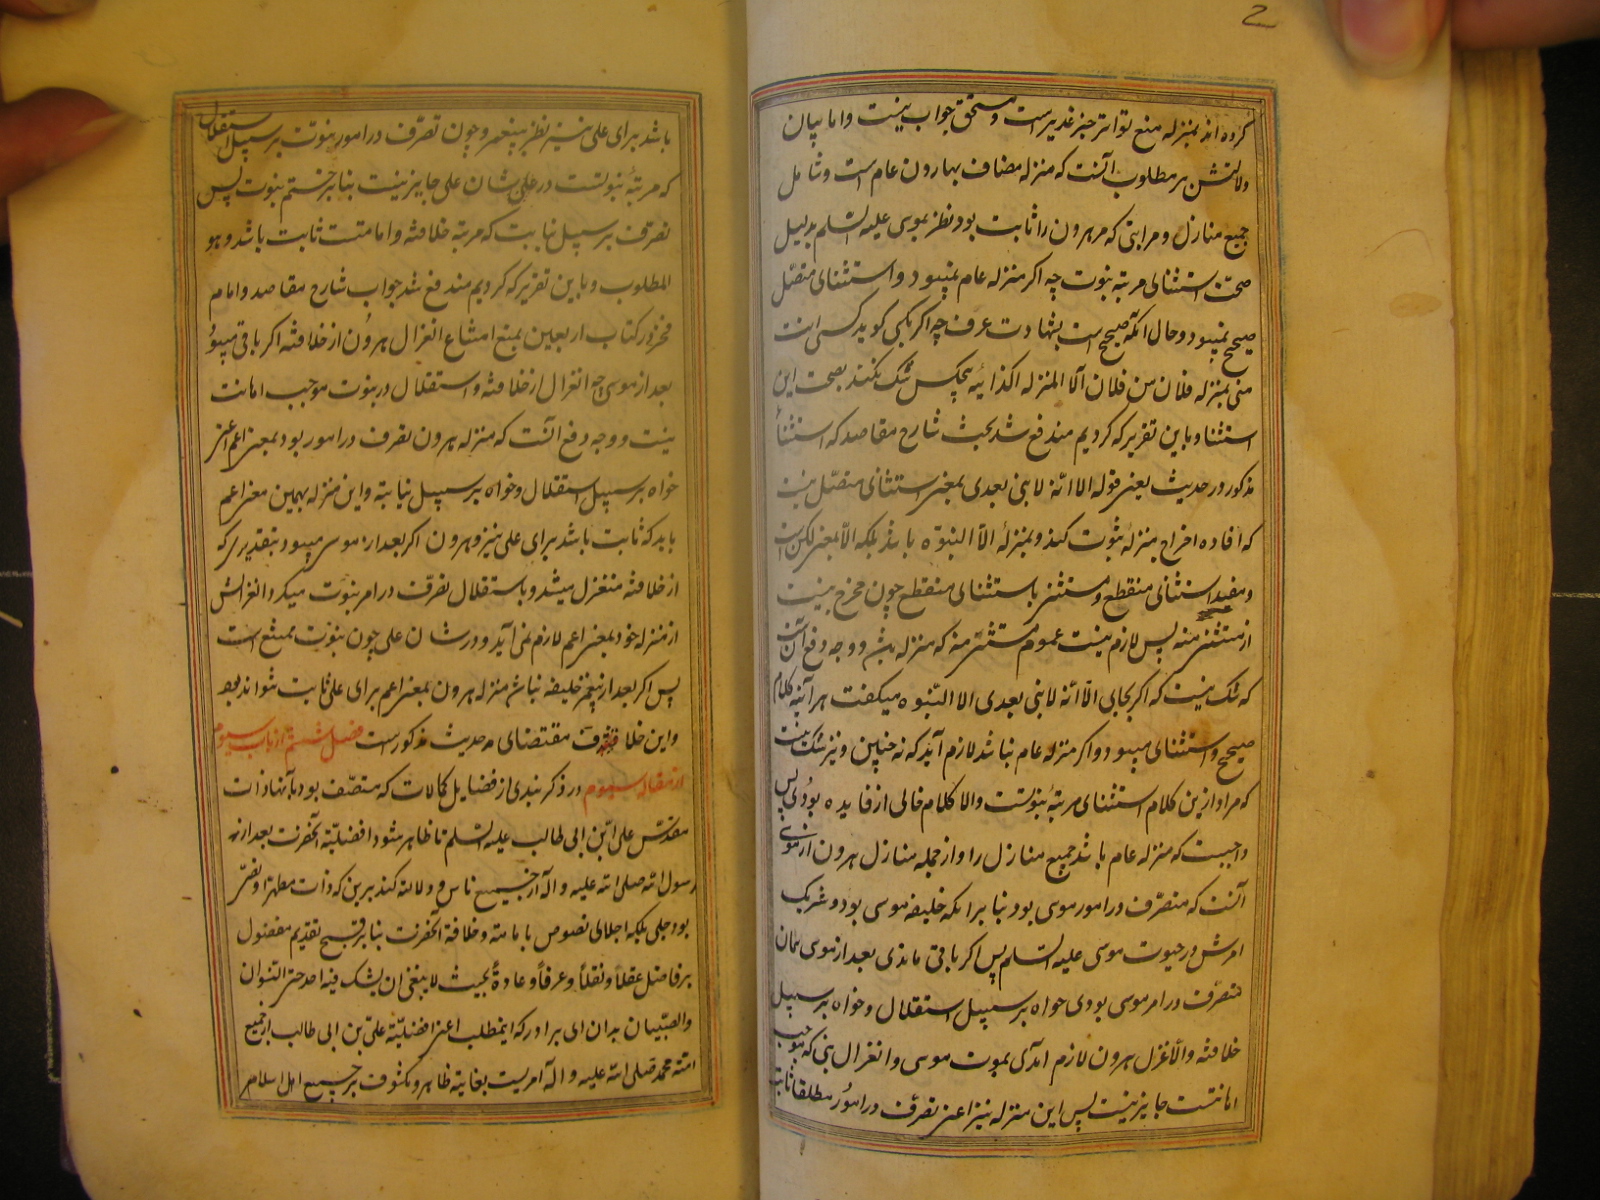 کرده اند بمنزله منع تواتر خبر غدیر است و مستحق جواب نیست و اما بیان
دلالتش بر مطلوب آنست که منزله مضاف بهارون عام است و شامل
جمیع منازل و مراتبی که مر هرون را ثابت بود نظر بموسی علیه السلم بدلیل
صحت استثنای مرتبه نبوت چه اکر منزله عام نمیبود و استثنای متصل
صحیح نمیبود و حال آنکه صحیح است بشهادت عرف چه اکر کسی کوید کسی انت
منی بمنزله فلان من فلان الا المنزله الکذائیه هیچکس شک نکند بصحت این
استثنا و باین تقریر که کردیم مندفع شد بحث شارح مقاصد که استثنأ
مذکور در حدیث یعنی قوله الا انه لا نبی بعدی بمعنی استثنای متصل نیست
که افاده اخراج منزله نبوت کند و بمنزلهٔ الا النبوه باشد بلکه الا بمعنی لکن است
و مفید استثنای منقطع و مستثنی باستثنای منقطع چون مخرج نیست
از مستثنی منه پس لازم نیست عموم مستثنی منه که منزله باشد و وجه دفع آنست
که شک نیست که اکر بجای الا انه لا نبی بعدی الا النبوه میکفت هر آینه کلام
صحیح و استثنای میبود و اکر منزله عام نباشد لازم آید که نه چنین و نیز شک نیست
که مراد ازین کلام استثنای مرتبهٔ نبوتست والا کلام خالی از فایده بودی پس
واجبست که منزله عام باشد جمیع منازل را و از جمله منازل هرون از موسی
آنست که متصرف در امور موسی بود بنا بر آنکه خلیفه موسی بود و شریک
امرش در حیوت موسی علیه السلم پس اکر باقی ماندی بعد از موسی همان
متصرف در امر موسی بودی خواه بر سبیل استقلال و خواه بر سبیل
خلافة و الا عزل هرون لازم آمدی بموت موسی و انعزال نبی که موجب
اهانتست جایز نیست پس این منزله نیز اعنی تصرف در امور مطلقا ثابت
باشد برای علی نیز نظر به پیغمبر و چون تصرف در امور نبوت بر سبیل استقلال
که مرتبهٔ نبوتست در علی شان علی جایز نیست بنا بر ختم نبوت پس
تصرف بر سبیل نیابت که مرتبه خلافة و امامتست ثابت باشد و هو
المطلوب و باین تقریر که کردیم مندفع شد جواب شارح مقاصد و امام
فخر در کتاب اربعین بمنع امتناع انعزال هرون از خلافة اکر باقی میبود
بعد از موسی چه انعزال از خلافة و استقلال در نبوت موجب اهانت
نیست و وجه دفع آنست که منزله هرون تصرف در امور بود بمعنی اعم اعنی
خواه بر سبیل استقلال و خواه بر سبیل نیابة و این منزله بهمین معنی اعم
باید که ثابت باشد برای علی نیز و هرون اکر بعد از موسی میبود بتقدیری که
از خلافة منعزل میشد و باستقلال تصرف در امر نبوت میکرد انعزالش
از منزله خود بمعنی اعم لازم نمی آید و در شان علی چون نبوت ممتنع است
پس اکر بعد از پیغمبر خلیفه نباشد منزله هرون بمعنی اعم برای علی ثابت نتواند بود
و این خلاف مقتضای حدیث مذکور است فصل ششم از باب سیوم
از مقاله سیوم در ذکر نبذی از فضایل کمالات که متصف بود بآنها ذات
مقدس علی ابن ابی طالب علیه السلم تا ظاهر شود افضلیة آنحضرت بعد از
رسول الله صلی الله علیه و اله از جمیع ناس و دلالة کند برین که ذات مطهر او نص
بود جلی بلکه اجلای نصوص بامامة و خلافة آنحضرت بنا بر قبح تقدیم مفضول
بر فاضل عقلاً و نقلاً و عرفاً و عادةً بحیث لا ینبغی ان یشک فیه احد حتی النسوان
والصبیان بدان ای برادر که اینمطلب اعنی افضلیة علی بن ابی طالب از جمیع
امة محمد صلی الله علیه و اله امریست بغایة ظاهر و مکشوف بر جمیع اهل اسلام